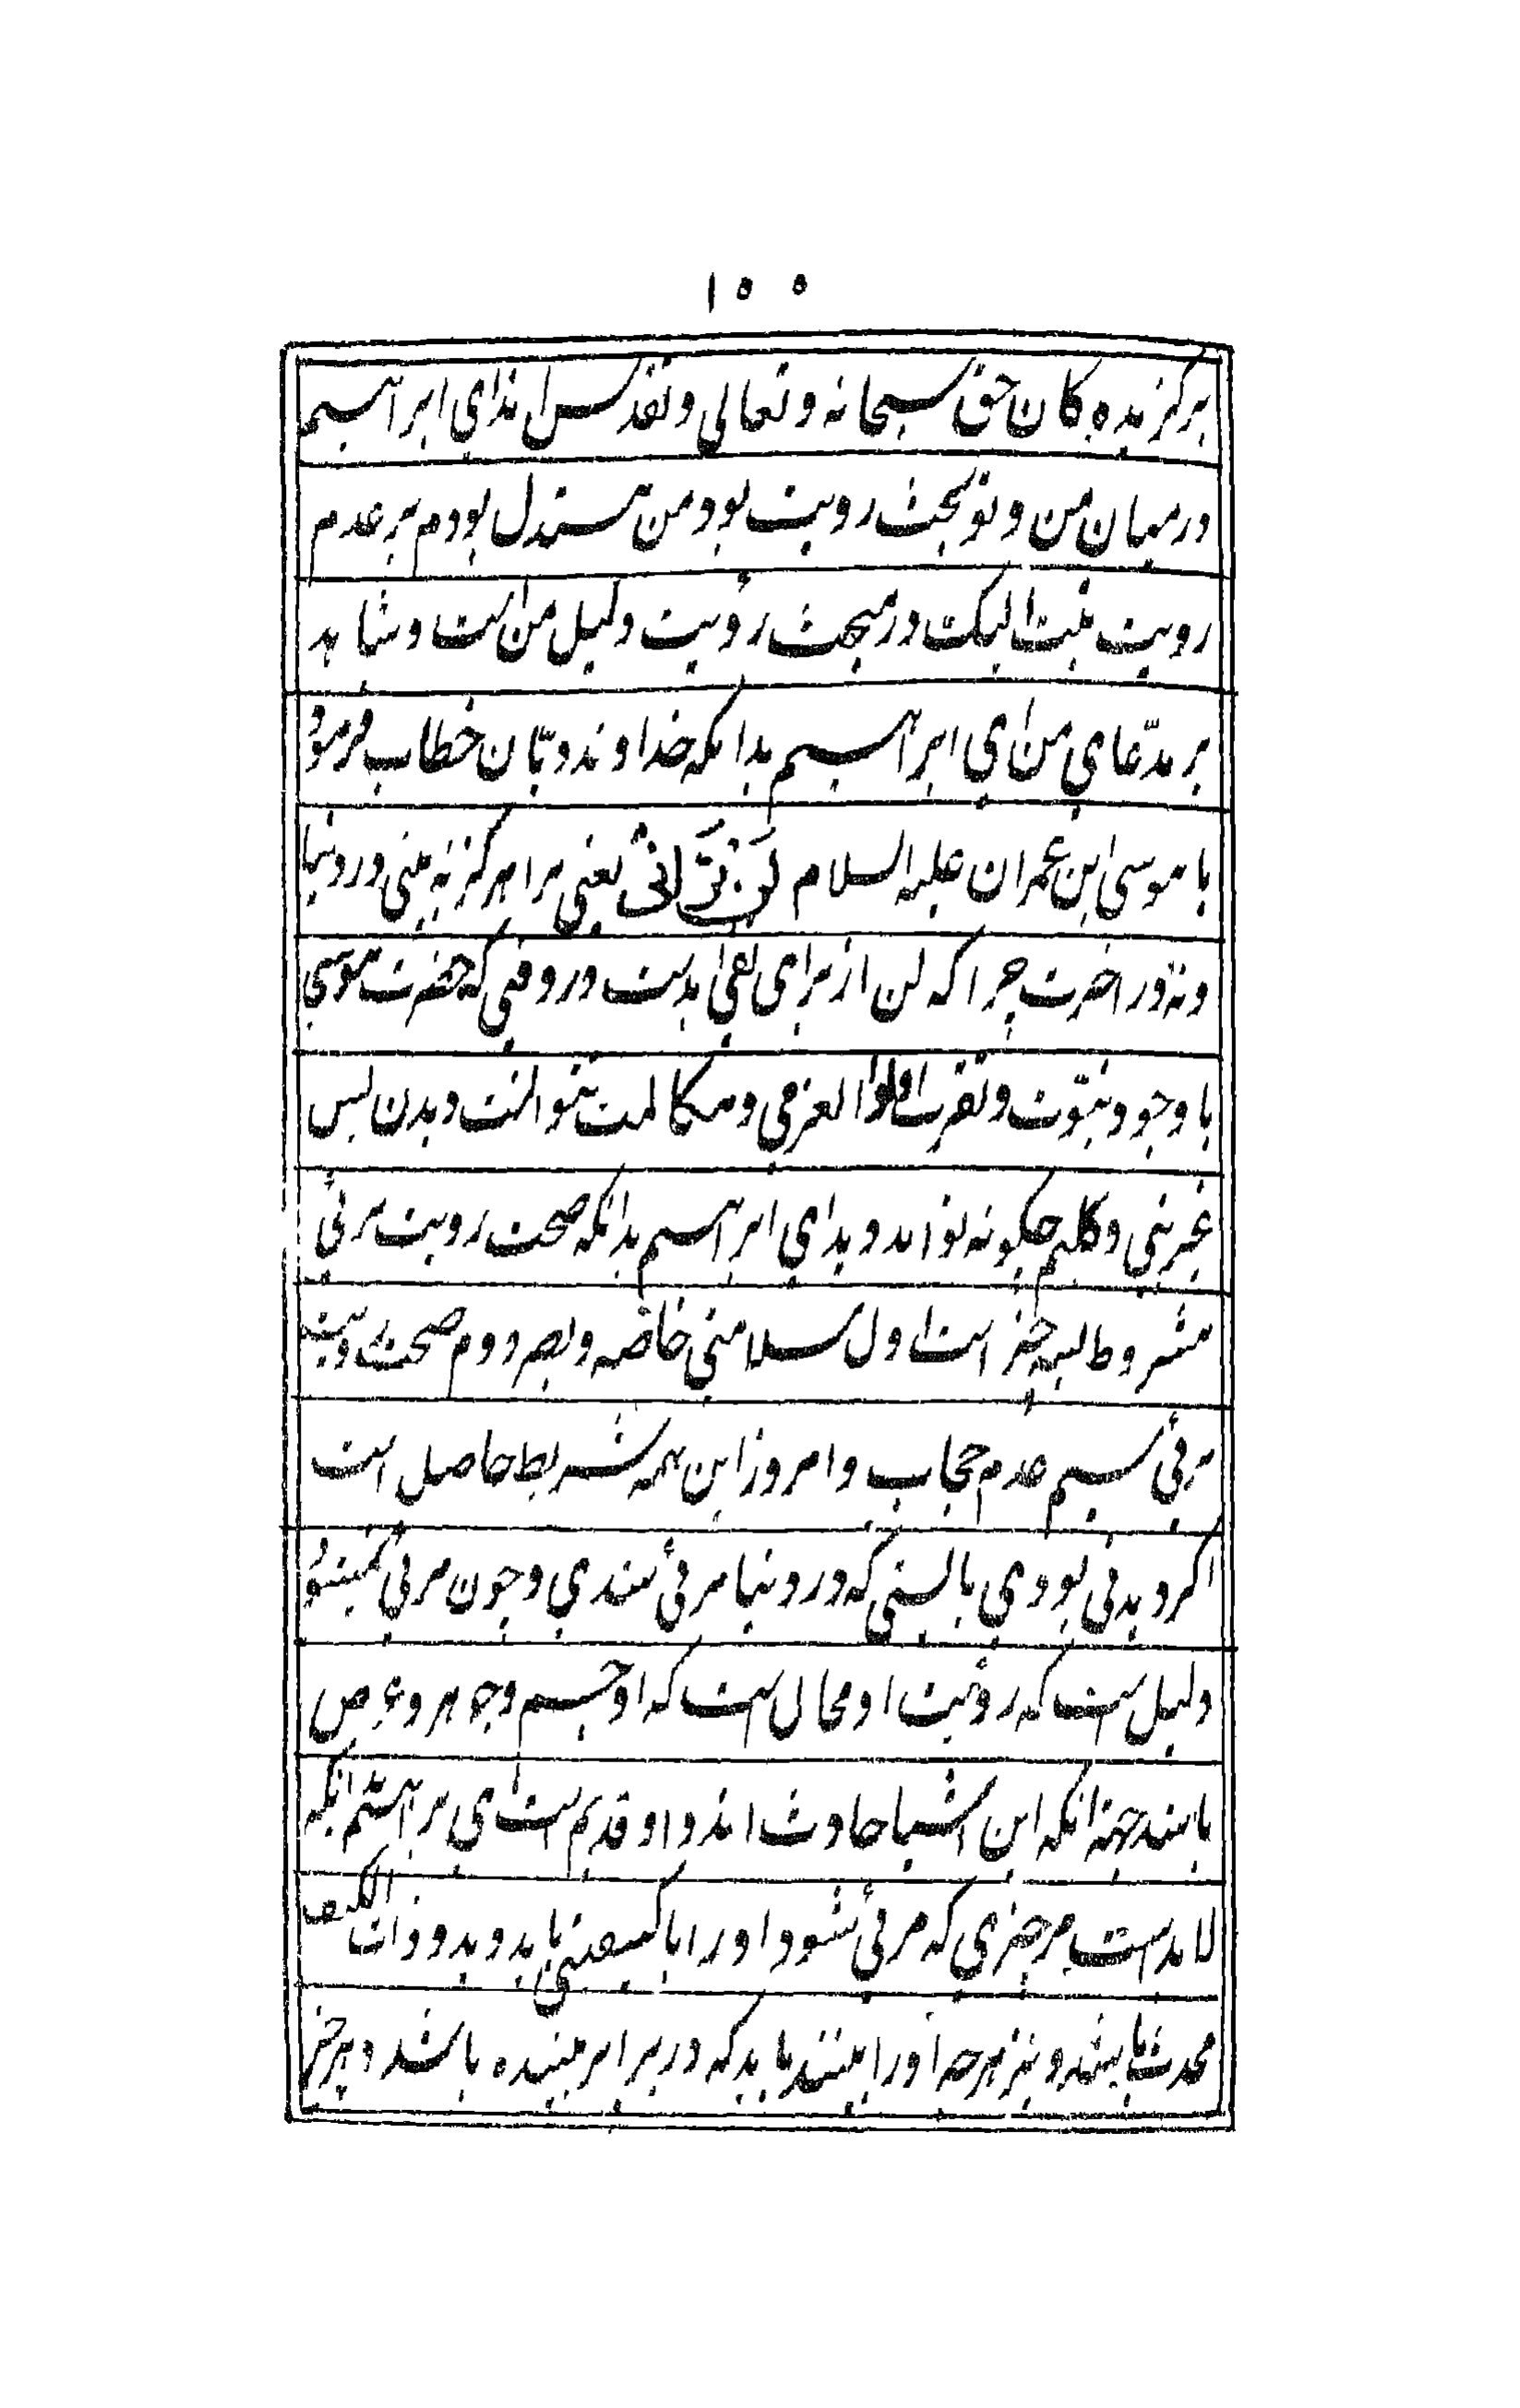 ۱۰۰
برگزیده کان حق سبحانه و تعالی و تقدس اما بدای ابراهیم
در میان من و تو بحث رویت بود من مستدل بودم بر عدم
رویت تبت الیک در مبحث رؤیت دلیل من است و شاهد
بر مدّعای من ای ابراهیم بدانکه خداوند دیّان خطاب فرمود
با موسی ابن عمران علیه السلام لَن تَرَانی یعنی مرا هرگز نه بینی در دنیا
و نه در اخرت چرا که لن از برای نفی ابدست در وقتی که حضرت موسی
با وجود نبوّت و تقرب اولوا العزمی و مکالمت نتوانست دیدن پس
غیر نبی و کلیم چکونه تواند دید ای ابراهیم بدانکه صحت رویت مرئی
مشروط بسه چیز است اول سلامتی حاصّه و بصر دوم صحت رویت
مرئی سیم عدم حجاب و امروز این همه شریط حاصل است
اکر دیدنی بودی بایستی که در دنیا مرئی شدی و چون مرئی نمیشود
دلیل ست که رؤیت او محال ست که او جسم و جوهر و عرض
باشد جهة انکه این اشیا حادث اند و او قدیم است ای براهیم انکه
لابدست هر چیزی که مرئی شود او را با کیفیتی باید دید و ذات الکیف
محدث باشد و نیز هرچه او را بینند باید که در برابر بیننده باشد و هرچیز